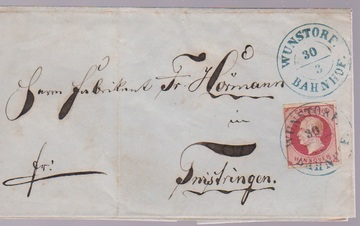 WUNSTORF
30
3
BAHNHOF.
Herrn Fabrikant Fr. Hörmann
in
WUNSTORF
30
BAHNH F.
HANNOVER
fr:
Twistringen.